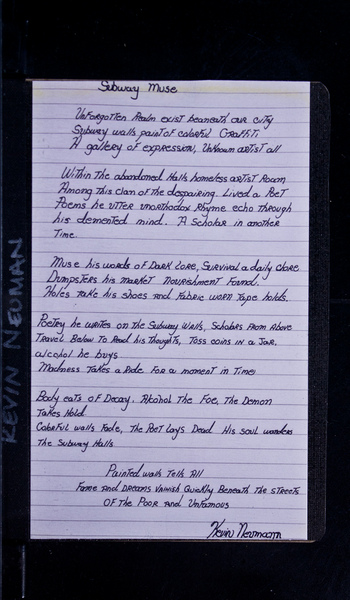 Subway Muse
Unforgotten Realm exist beaneath our city
Subway walls paint of colorful Graffiti
A gallery of expression, Unknown artist all
Within the abandoned Halls homeless artist Roam
Among this clan of the despairing. Lived a Poet
Poems he utter unorthodox Rhyme echo through
his demented mind. A Scholar in another
Time
Muse his words of Dark Lore, Survival a daily chore
Dumpsters his market nourishment Found.
Holes take his shoes and Fabric worn Tape holds.
Poetry he writes on the Subway Walls, Scholars From Above
Travel Below To Read his Thoughts, Toss coins in a Jar.
alcohol he buys
Madness Takes a Ride For a moment in Time
Body eats of Decay. Alcohol The Foe, The Demon
Takes Hold
Colorful walls Fade, The Poet Lays Dead His soul wanders
The Subway Halls
Painted walls Tells All
Fame and Dreams Vanish Quickly Beneath the Streets
Of the Poor and Unfamous
Kevin Neumann
KEVIN NEUMAN